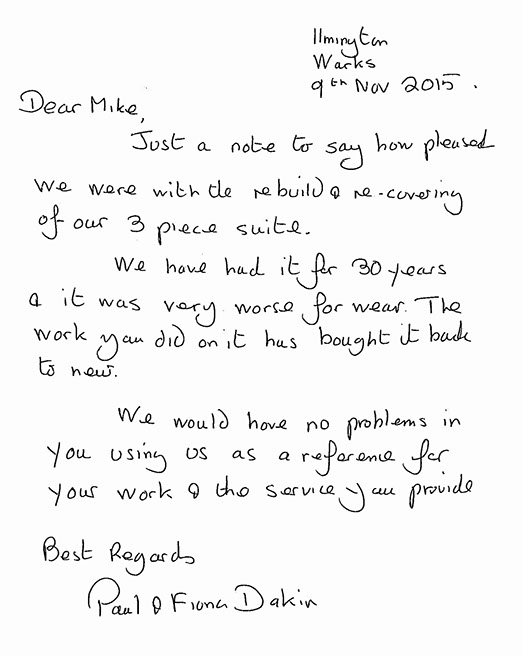 Ilmington
Warks
9th Nov 2015.
Dear Mike,
Just a note to say how pleased
we were with the rebuild & re-covering
of our 3 piece suite.
We have had it for 30 years
& it was very worse for wear. The
work you did on it has bought it back
to new.
We would have no problems in
you using us as a reference for
your work & the service you provide
Best Regards
Paul & Fiona Dakin